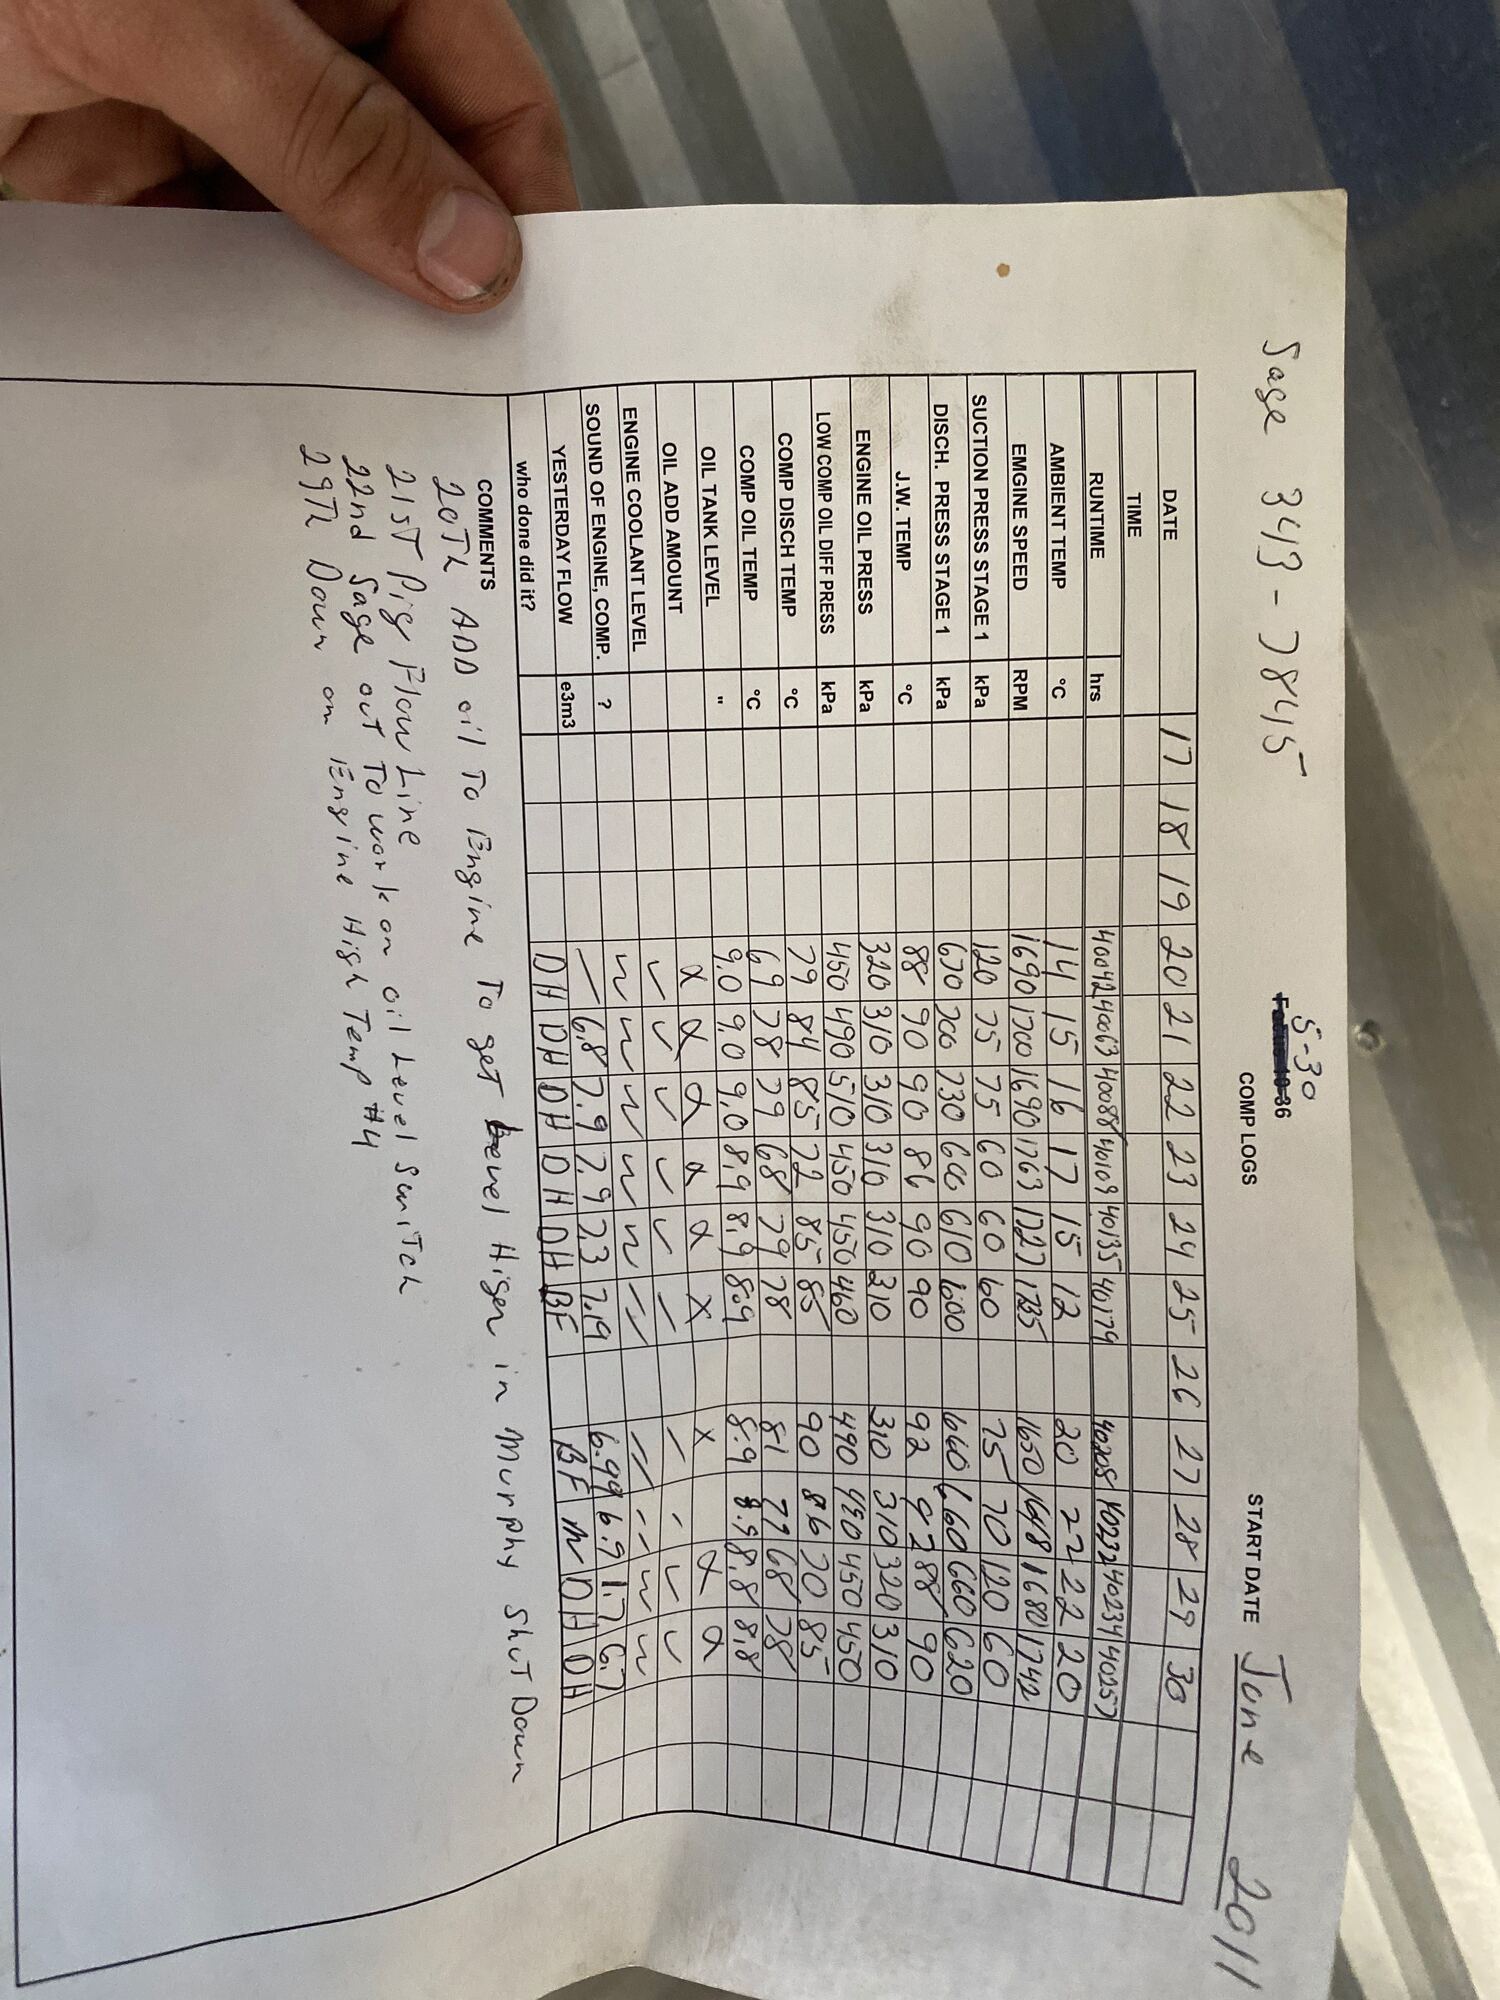 Sage 343-78415
5-30
36
COMP LOGS START DATE June 2011
DATE 17 18 19 20 21 22 23 24 25 26 27 28 29 30
TIME
RUNTIME hrs 40042 40063 40088 40109 40135 40179 40205 40232 40234 40257
AMBIENT TEMP °C 14 15 16 17 15 12 20 22 22 20
EMGINE SPEED RPM 1690 1700 1690 1763 1727 1735 1650 1648 1680 1742
SUCTION PRESS STAGE 1 kPa 120 75 75 60 60 60 75 70 120 60
DISCH. PRESS STAGE 1 kPa 670 700 730 600 610 600 660 660 660 620
J.W. TEMP °C 88 90 90 86 90 90 92 92 88 90
ENGINE OIL PRESS kPa 320 310 310 310 310 310 310 310 320 310
LOW COMP OIL DIFF PRESS kPa 450 490 510 450 450 460 490 490 450 450
COMP DISCH TEMP °C 79 84 85 72 85 85 90 86 70 85
COMP OIL TEMP °C 69 78 79 68 79 78 81 77 68 78
OIL TANK LEVEL " 9.0 9.0 9.0 8.9 8.9 8.9 8.9 8.9 8.8 8.8
OIL ADD AMOUNT x x x x x x x x x
ENGINE COOLANT LEVEL ✓ ✓ ✓ ✓ ✓ ✓ ✓ ✓ ✓ ✓
SOUND OF ENGINE, COMP. ? ✓✓ ✓✓ ✓✓ ✓✓ ✓✓ ✓✓ ✓✓ ✓✓ ✓✓ ✓✓
YESTERDAY FLOW e3m3 — 6.8 7.9 7.9 7.3 7.19 6.99 6.9 1.7 6.7
who done did it? DH DH DH DH DH BF BF DH DH
COMMENTS
20Th ADD oil To Engine To get Level Higer in Murphy ShuT Down
21sT Pig Flow Line
22nd Sage ouT To work on oil Level SwiTch
29Th Down on Engine High Temp #4